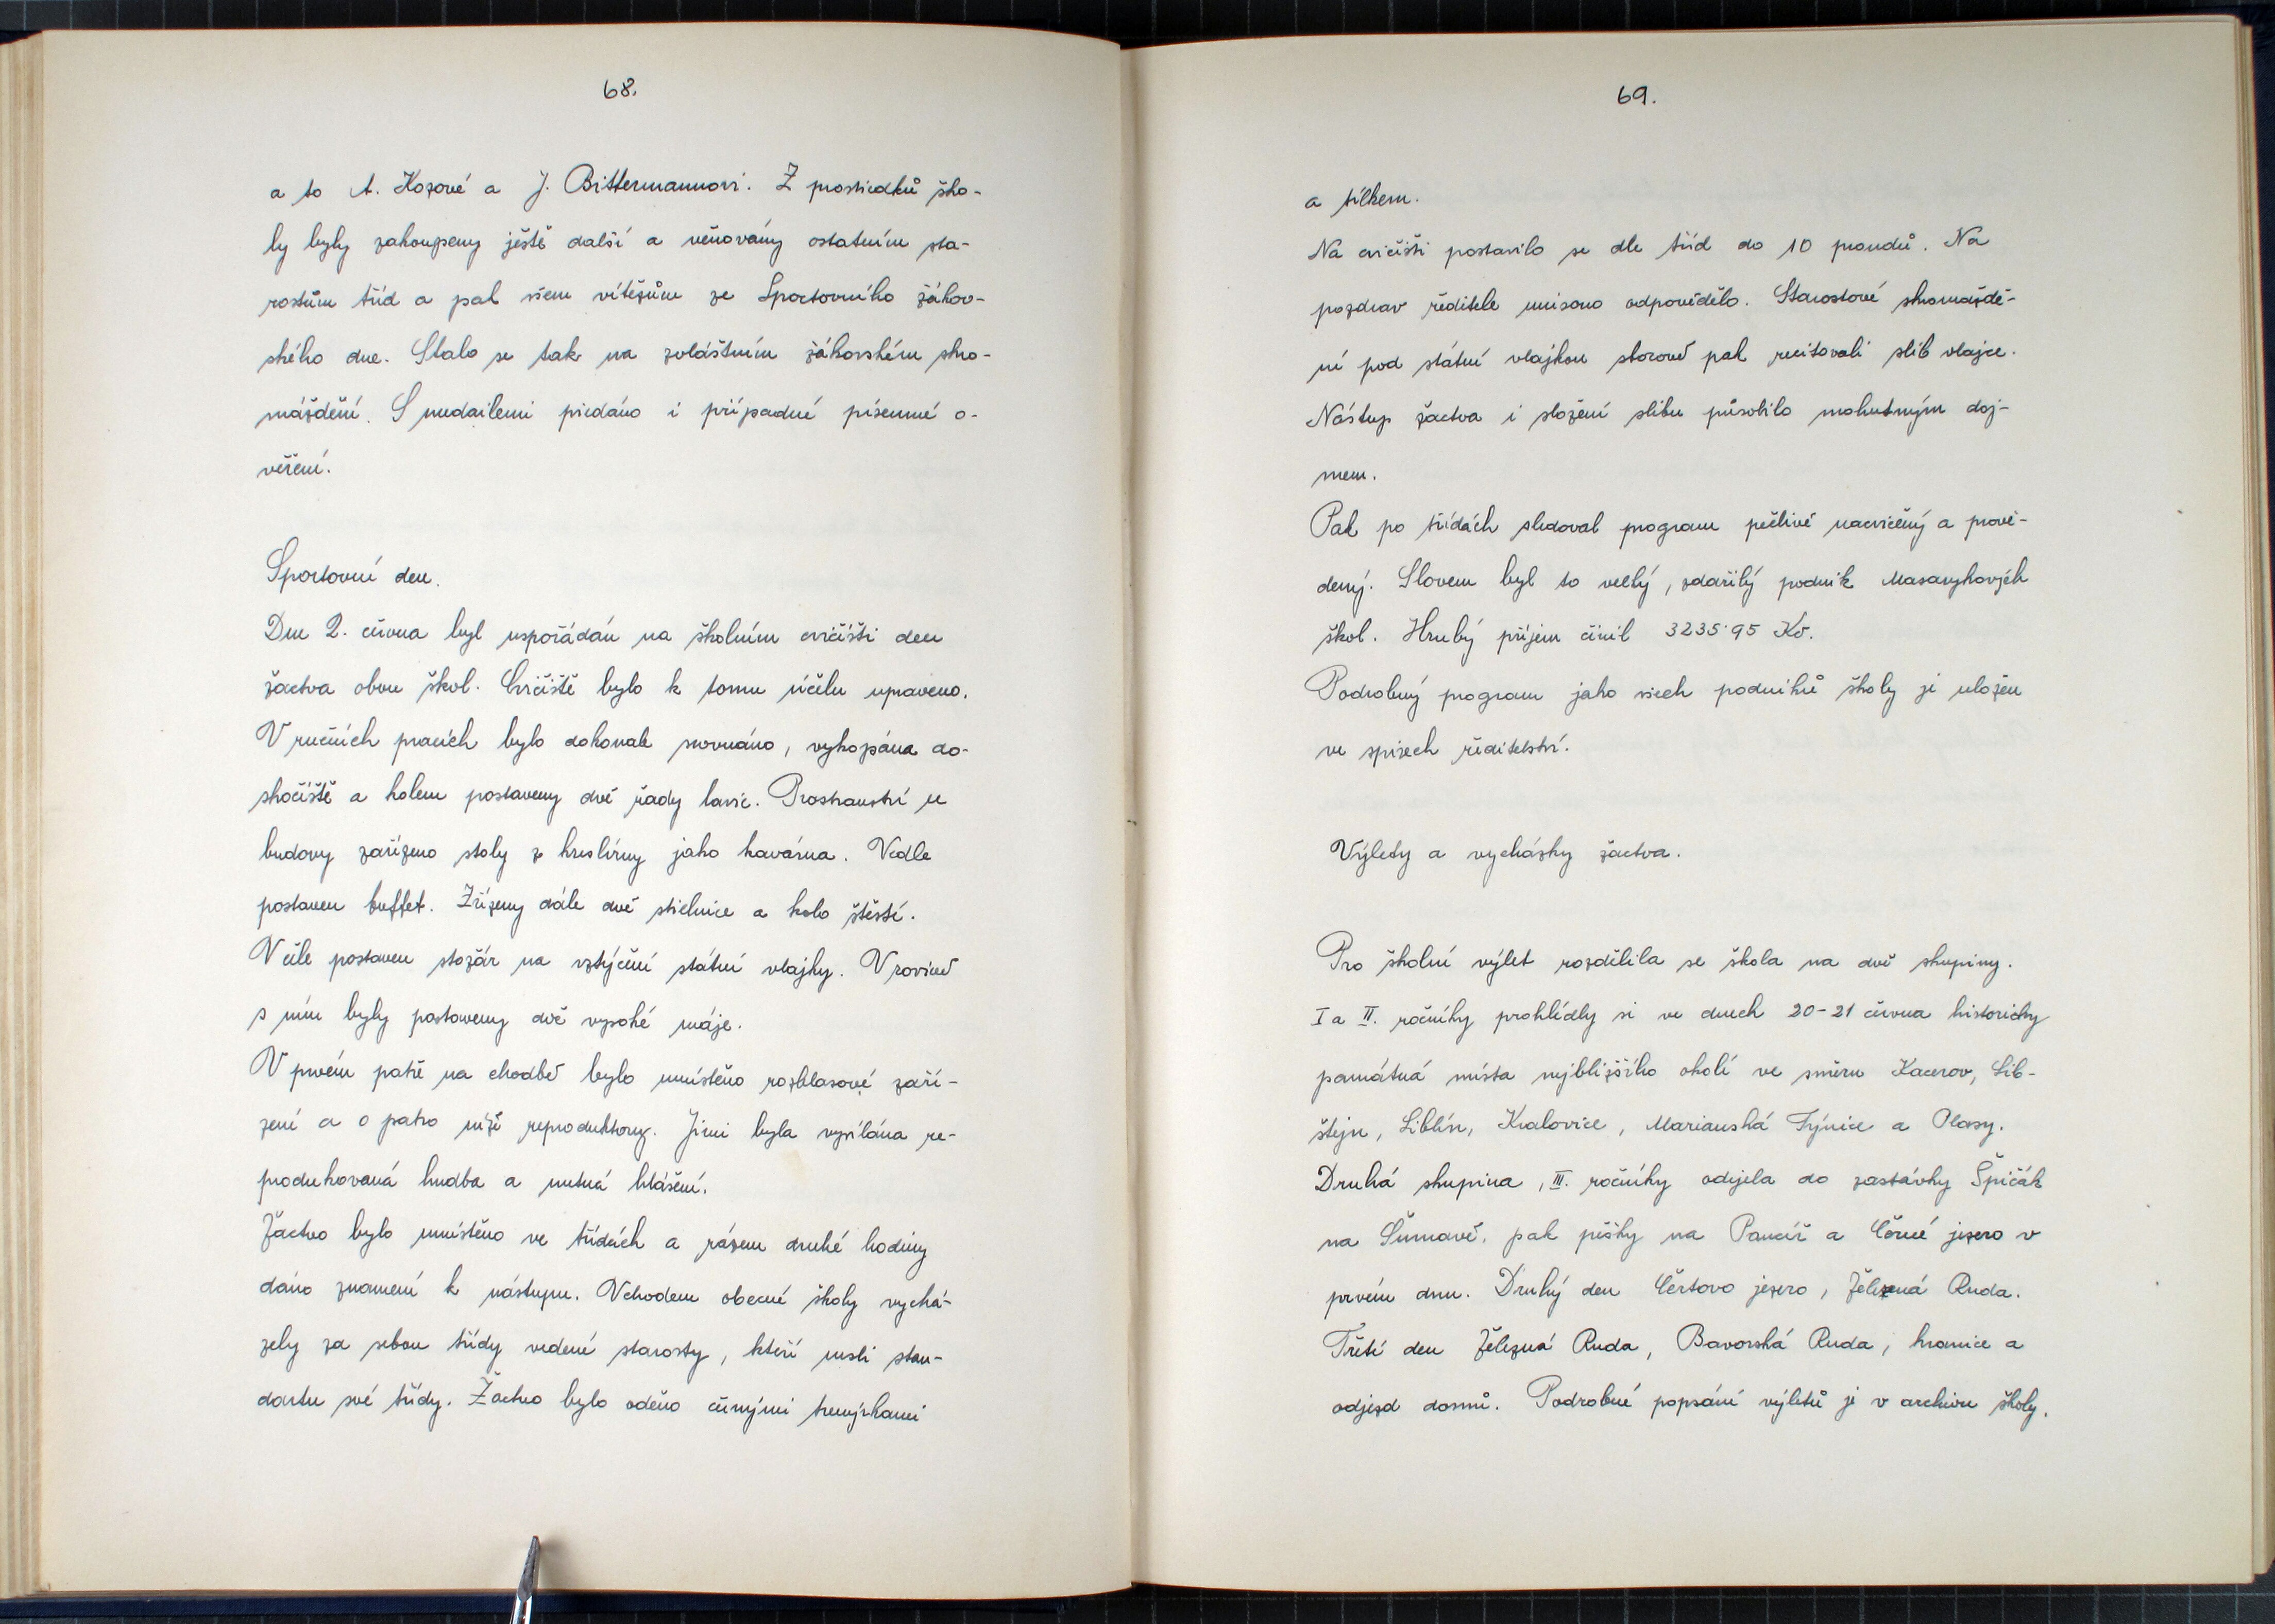 68.
a to A. Kozové a J. Bittermannovi. Z prostředků ško-
ly byly zakoupeny ještě další a věnovány ostatním sta-
rostům tříd a pak všem vítězům ze Sportovního žákov-
ského dne. Stalo se tak na zvláštním žákovském shro-
máždění. S medailemi předáno i případné písemné o-
věření.
Sportovní den.
Dne 2. června byl uspořádán na školním cvičišti den
žactva obou škol. Cvičiště bylo k tomu účelu upraveno.
V ručních pracích bylo dokonale srovnáno, vykopána do-
skočiště a kolem postaveny dvě řady lavic. Prostranství u
budovy zařízeno stoly z kreslírny jako kavárna. Vedle
postaven buffet. Zřízeny dále dvě střelnice a kolo štěstí.
V čele postaven stožár na vztýčení státní vlajky. V rovině
s ním byly postaveny dvě vysoké máje.
V prvém patře na chodbě bylo umístěno rozhlasové zaří-
zení a o patro níže reproduktory. Jimi byla vysílána re-
produkovaná hudba a nutná hlášení.
Žactvo bylo umístěno ve třídách a rázem druhé hodiny
dáno znamení k nástupu. Vchodem obecné školy vychá-
zely za sebou třídy vedené starosty, kteří nesli stan-
dartu své třídy. Žactvo bylo oděno černými trenýrkami
69.
a tílkem.
Na cvičišti postavilo se dle tříd do 10 proudů. Na
pozdrav ředitele unisono odpovědělo. Starostové shromáždě-
ní pod státní vlajkou sborově pak recitovali slib vlajce.
Nástup žactva i složení slibu působilo mohutným doj-
mem.
Pak po třídách sledoval program pečlivě nacvičený a prove-
dený. Slovem byl to velký, zdařilý podnik Masarykových
škol. Hrubý příjem činil 3235·95 Kč.
Podrobný program jako všech podniků školy je uložen
ve spisech ředitelství.
Výlety a vycházky žactva.
Pro školní výlet rozdělila se škola na dvě skupiny.
I a II. ročníky prohlédly si ve dnech 20-21 června historicky
památná místa nejbližšího okolí ve směru Kacerov, Lib-
štejn, Liblín, Kralovice, Marianská Týnice a Plasy.
Druhá skupina, III. ročníky odjela do zastávky Špičák
na Šumavě, pak pěšky na Pancíř a Černé jezero v
prvém dnu. Druhý den Čertovo jezero, Železná Ruda.
Třetí den Železná Ruda, Bavorská Ruda, hranice a
odjezd domů. Podrobné popsání výletů je v archivu školy.